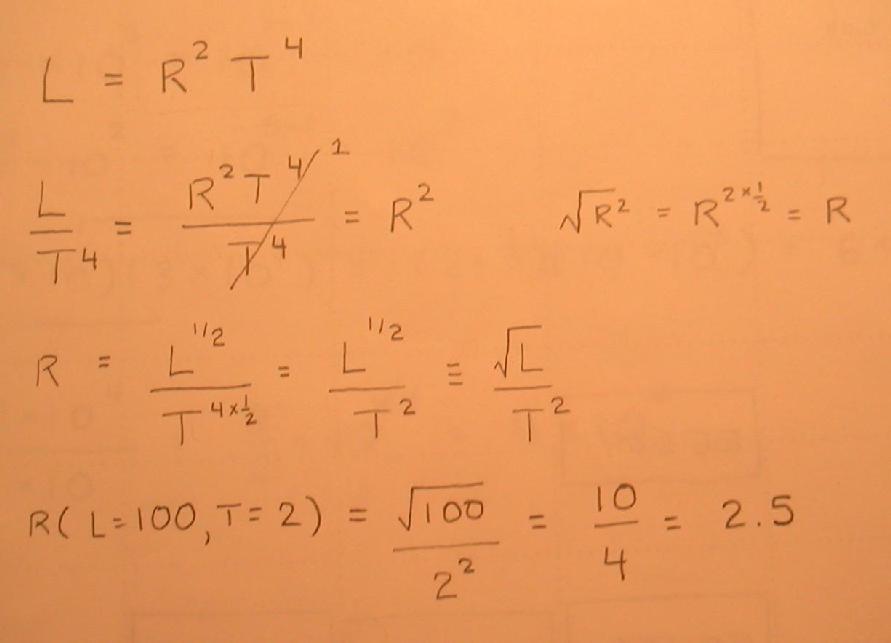 L = R² T⁴
L/T⁴ = R² T⁴/T⁴ ¹ = R²    √R² = R^(2×½) = R
R = L^(1/2)/T^(4×½) = L^(1/2)/T² ≡ √L/T²
R( L=100, T=2) = √100/2² = 10/4 = 2.5